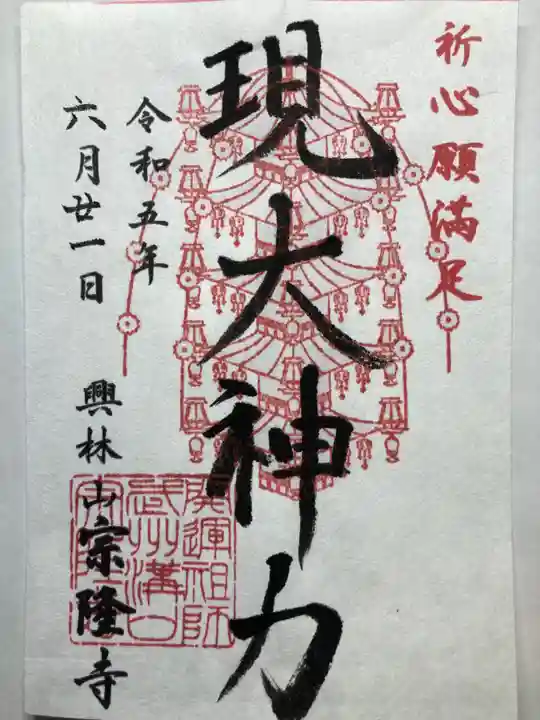 祈心願満足
現大神力
令和五年
六月廿一日
興林山宗隆寺
開運祖師
武州溝口